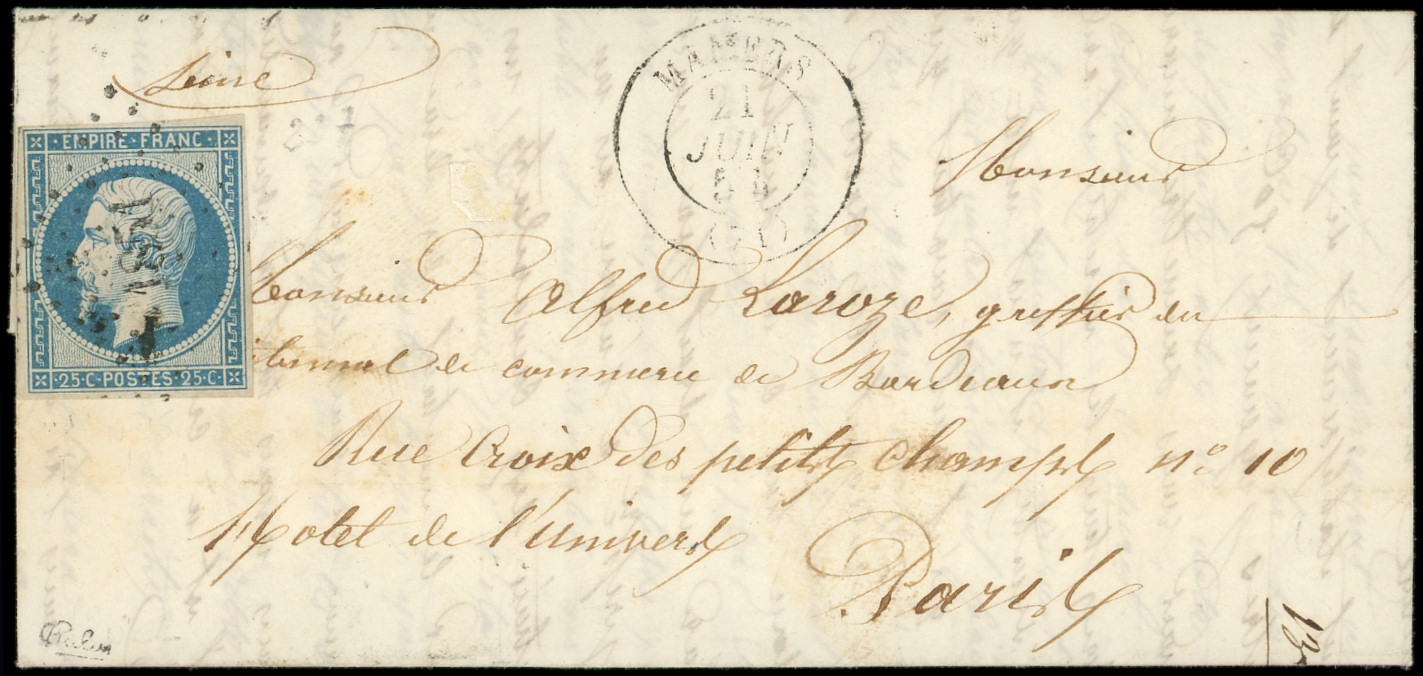 Seine
EMPIRE·FRANC
25·C·POSTES·25·C
MAMERS
21
JUIN
54
(71)
Monsieur
Monsieur Alfred Laroze, greffier du
tribunal de commerce de Bordeaux
Rue Croix des petits champs no 10
Hotel de l'univers
Paris